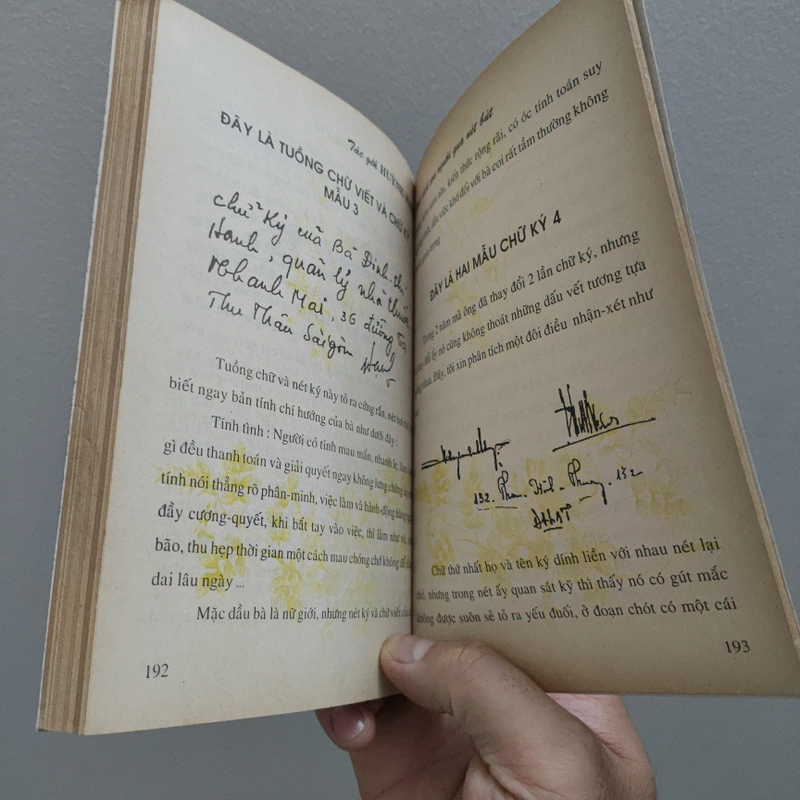 Tác giả HUỲNH
ĐÂY LÀ TUỒNG CHỮ VIẾT VÀ CHỮ KÝ
MẪU 3
chữ Ký của Bà Đinh thị
Hạnh, quản lý nhà thuốc
Nhành Mai, 36 đường Tạ
Thu Thâu Sàigòn Hạnh
Tuồng chữ và nét ký này tỏ ra cứng rắn, nét
biết ngay bản tính chí hướng của bà như dưới đây :
Tính tình : Người có tính mau mắn, nhanh lẹ,
gì đều thanh toán và giải quyết ngay không lưng chừng
tính nói thẳng rõ phân-minh, việc làm và hành-động hăng
đầy cương-quyết, khi bắt tay vào việc, thì làm như vũ
bão, thu hẹp thời gian một cách mau chóng chớ không để
dai lâu ngày ...
Mặc dầu bà là nữ giới, nhưng nét ký và chữ viết của
192
con người qua nét bút
nhi, kiến thức rộng rãi, có óc tính toán suy
dẫu việc khó đối với bà coi rất tầm thường không
ĐÂY LÀ HAI MẪU CHỮ KÝ 4
Trong 2 năm mà ông đã thay đổi 2 lần chữ ký, nhưng
đổi ấy nó cũng không thoát những dấu vết tương tựa
nhau. Đây, tôi xin phân tích một đôi điều nhận-xét như
132. Phan - Đình - Phùng, 132
Chữ thứ nhất họ và tên ký dính liền với nhau nét lại
nhỏ, nhưng trong nét ấy quan sát kỹ thì thấy nó có gút mắc
không được suôn sẻ tỏ ra yếu đuối, ở đoạn chót có một cái
193